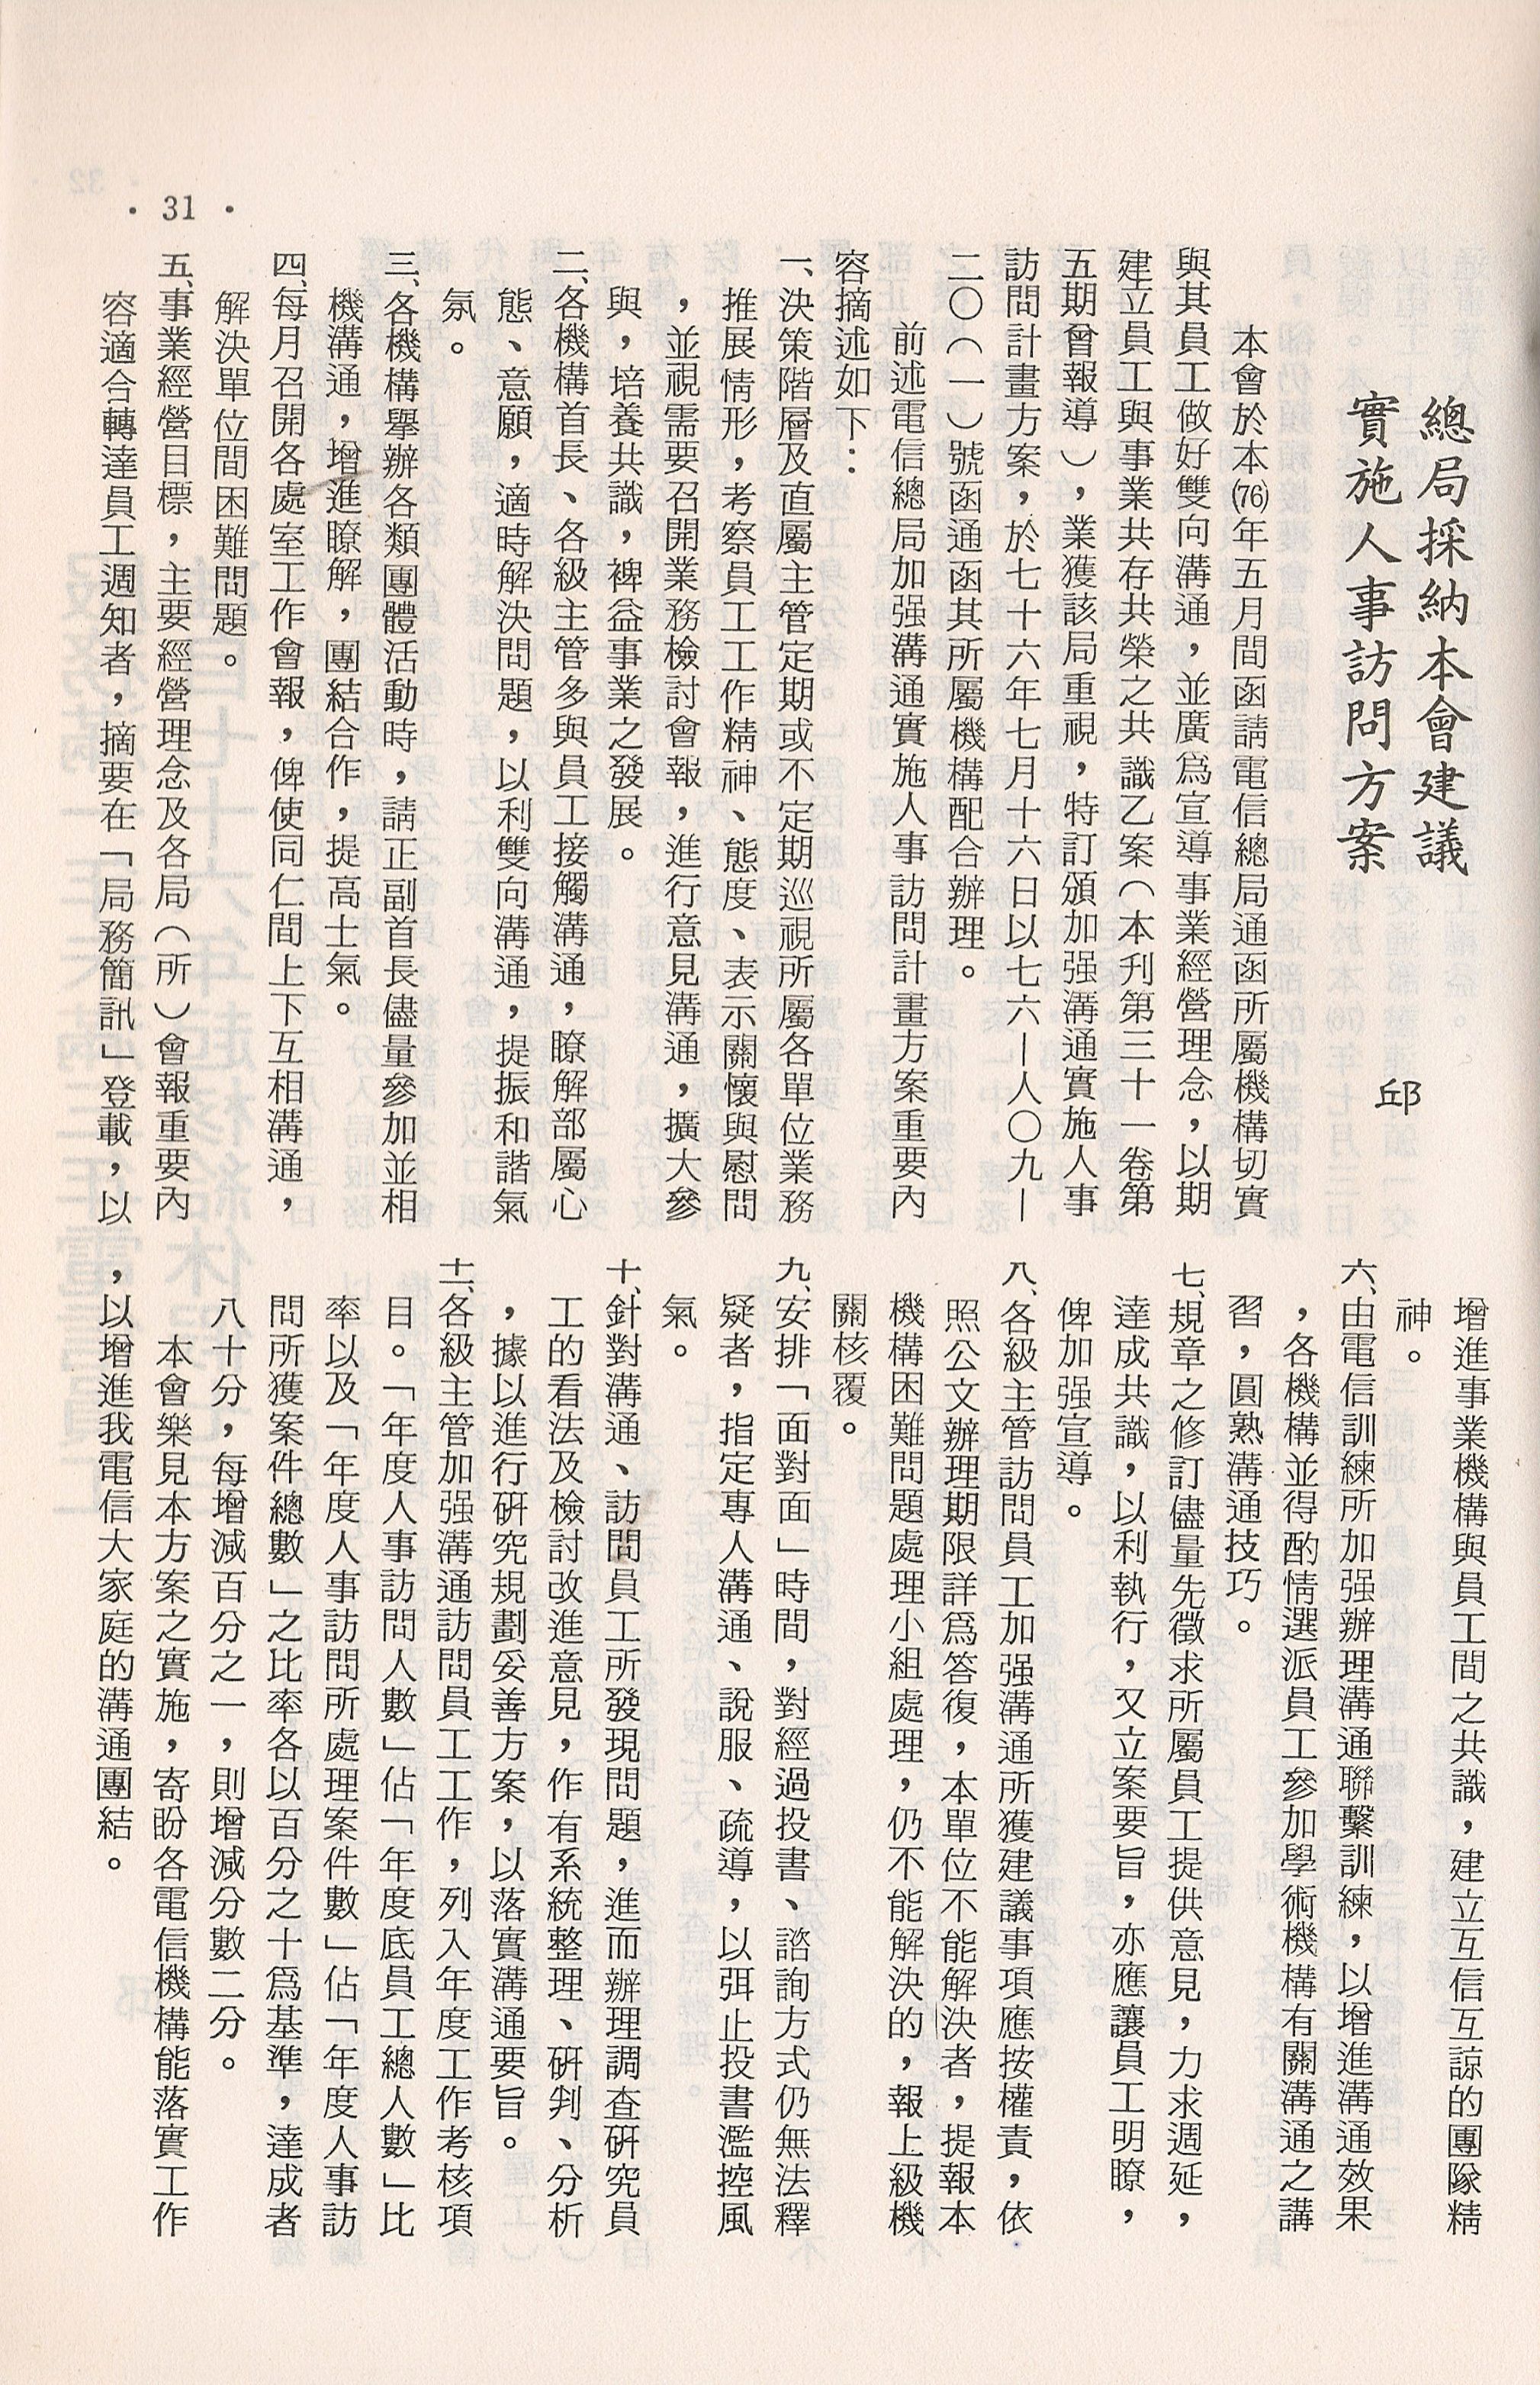 總局採納本會建議
實施人事訪問方案
邱
本會於本(76)年五月間函請電信總局通函所屬機構切實
與其員工做好雙向溝通，並廣爲宣導事業經營理念，以期
建立員工與事業共存共榮之共識乙案（本刋第三十一卷第
五期曾報導），業獲該局重視，特訂頒加强溝通實施人事
訪問計畫方案，於七十六年七月十六日以七六—人〇九—
二〇（一）號函通函其所屬機構配合辦理。
前述電信總局加强溝通實施人事訪問計畫方案重要內
容摘述如下：
一、決策階層及直屬主管定期或不定期巡視所屬各單位業務
推展情形，考察員工工作精神、態度、表示關懷與慰問
，並視需要召開業務檢討會報，進行意見溝通，擴大參
與，培養共識，裨益事業之發展。
二、各機構首長、各級主管多與員工接觸溝通，瞭解部屬心
態、意願，適時解決問題，以利雙向溝通，提振和諧氣
氛。
三、各機構舉辦各類團體活動時，請正副首長儘量參加並相
機溝通，增進瞭解，團結合作，提高士氣。
四、每月召開各處室工作會報，俾使同仁間上下互相溝通，
解決單位間困難問題。
五、事業經營目標，主要經營理念及各局（所）會報重要內
容適合轉達員工週知者，摘要在「局務簡訊」登載，以
增進事業機構與員工間之共識，建立互信互諒的團隊精
神。
六、由電信訓練所加强辦理溝通聯繫訓練，以增進溝通效果
，各機構並得酌情選派員工參加學術機構有關溝通之講
習，圓熟溝通技巧。
七、規章之修訂儘量先徵求所屬員工提供意見，力求週延，
達成共識，以利執行，又立案要旨，亦應讓員工明瞭，
俾加强宣導。
八、各級主管訪問員工加强溝通所獲建議事項應按權責，依
照公文辦理期限詳爲答復，本單位不能解決者，提報本
機構困難問題處理小組處理，仍不能解決的，報上級機
關核覆。
九、安排「面對面」時間，對經過投書、諮詢方式仍無法釋
疑者，指定專人溝通、說服、疏導，以弭止投書濫控風
氣。
十、針對溝通、訪問員工所發現問題，進而辦理調查硏究員
工的看法及檢討改進意見，作有系統整理、硏判、分析
，據以進行硏究規劃妥善方案，以落實溝通要旨。
十一、各級主管加强溝通訪問員工工作，列入年度工作考核項
目。「年度人事訪問人數」佔「年度底員工總人數」比
率以及「年度人事訪問所處理案件數」佔「年度人事訪
問所獲案件總數」之比率各以百分之十爲基準，達成者
八十分，每增減百分之一，則增減分數二分。
本會樂見本方案之實施，寄盼各電信機構能落實工作
，以增進我電信大家庭的溝通團結。
• 31 •